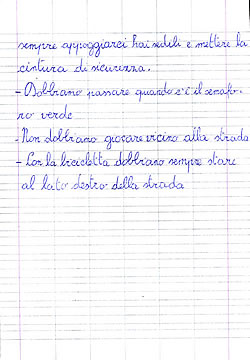 sempre appoggiarci hai sedili e mettere la
cintura di sicurezza.
- Dobbiamo passare quando c'è il semafo-
ro verde
- Non dobbiamo giocare vicino alla strada
- Con la bicicletta dobbiamo sempre stare
al lato destro della strada